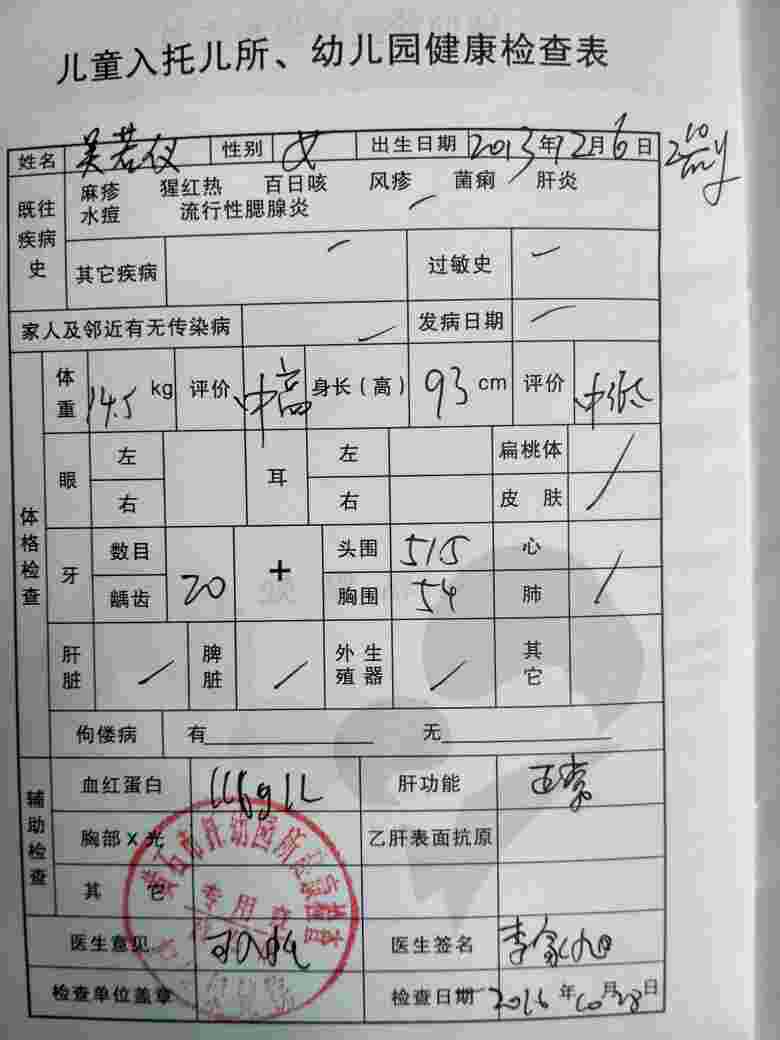 儿童入托儿所、幼儿园健康检查表
姓名 吴若仪 性别 女 出生日期 2013年12月6日
既往疾病史 麻疹 猩红热 百日咳 风疹 菌痢 肝炎
水痘 流行性腮腺炎
其它疾病 过敏史
家人及邻近有无传染病 发病日期
体格检查
体重 14.5 kg 评价 中高 身长(高) 93 cm 评价 中低
眼 左 耳 左 扁桃体
右 右 皮肤
牙 数目 20 + 头围 51.5 心
龋齿 胸围 54 肺
肝脏 脾脏 外生殖器 其它
佝偻病 有 无
辅助检查
血红蛋白 116g/L 肝功能 正常
胸部X光 乙肝表面抗原
其它
医生意见 可入托 医生签名
检查单位盖章 检查日期 2016年10月28日
黄石市托幼园所
专用章